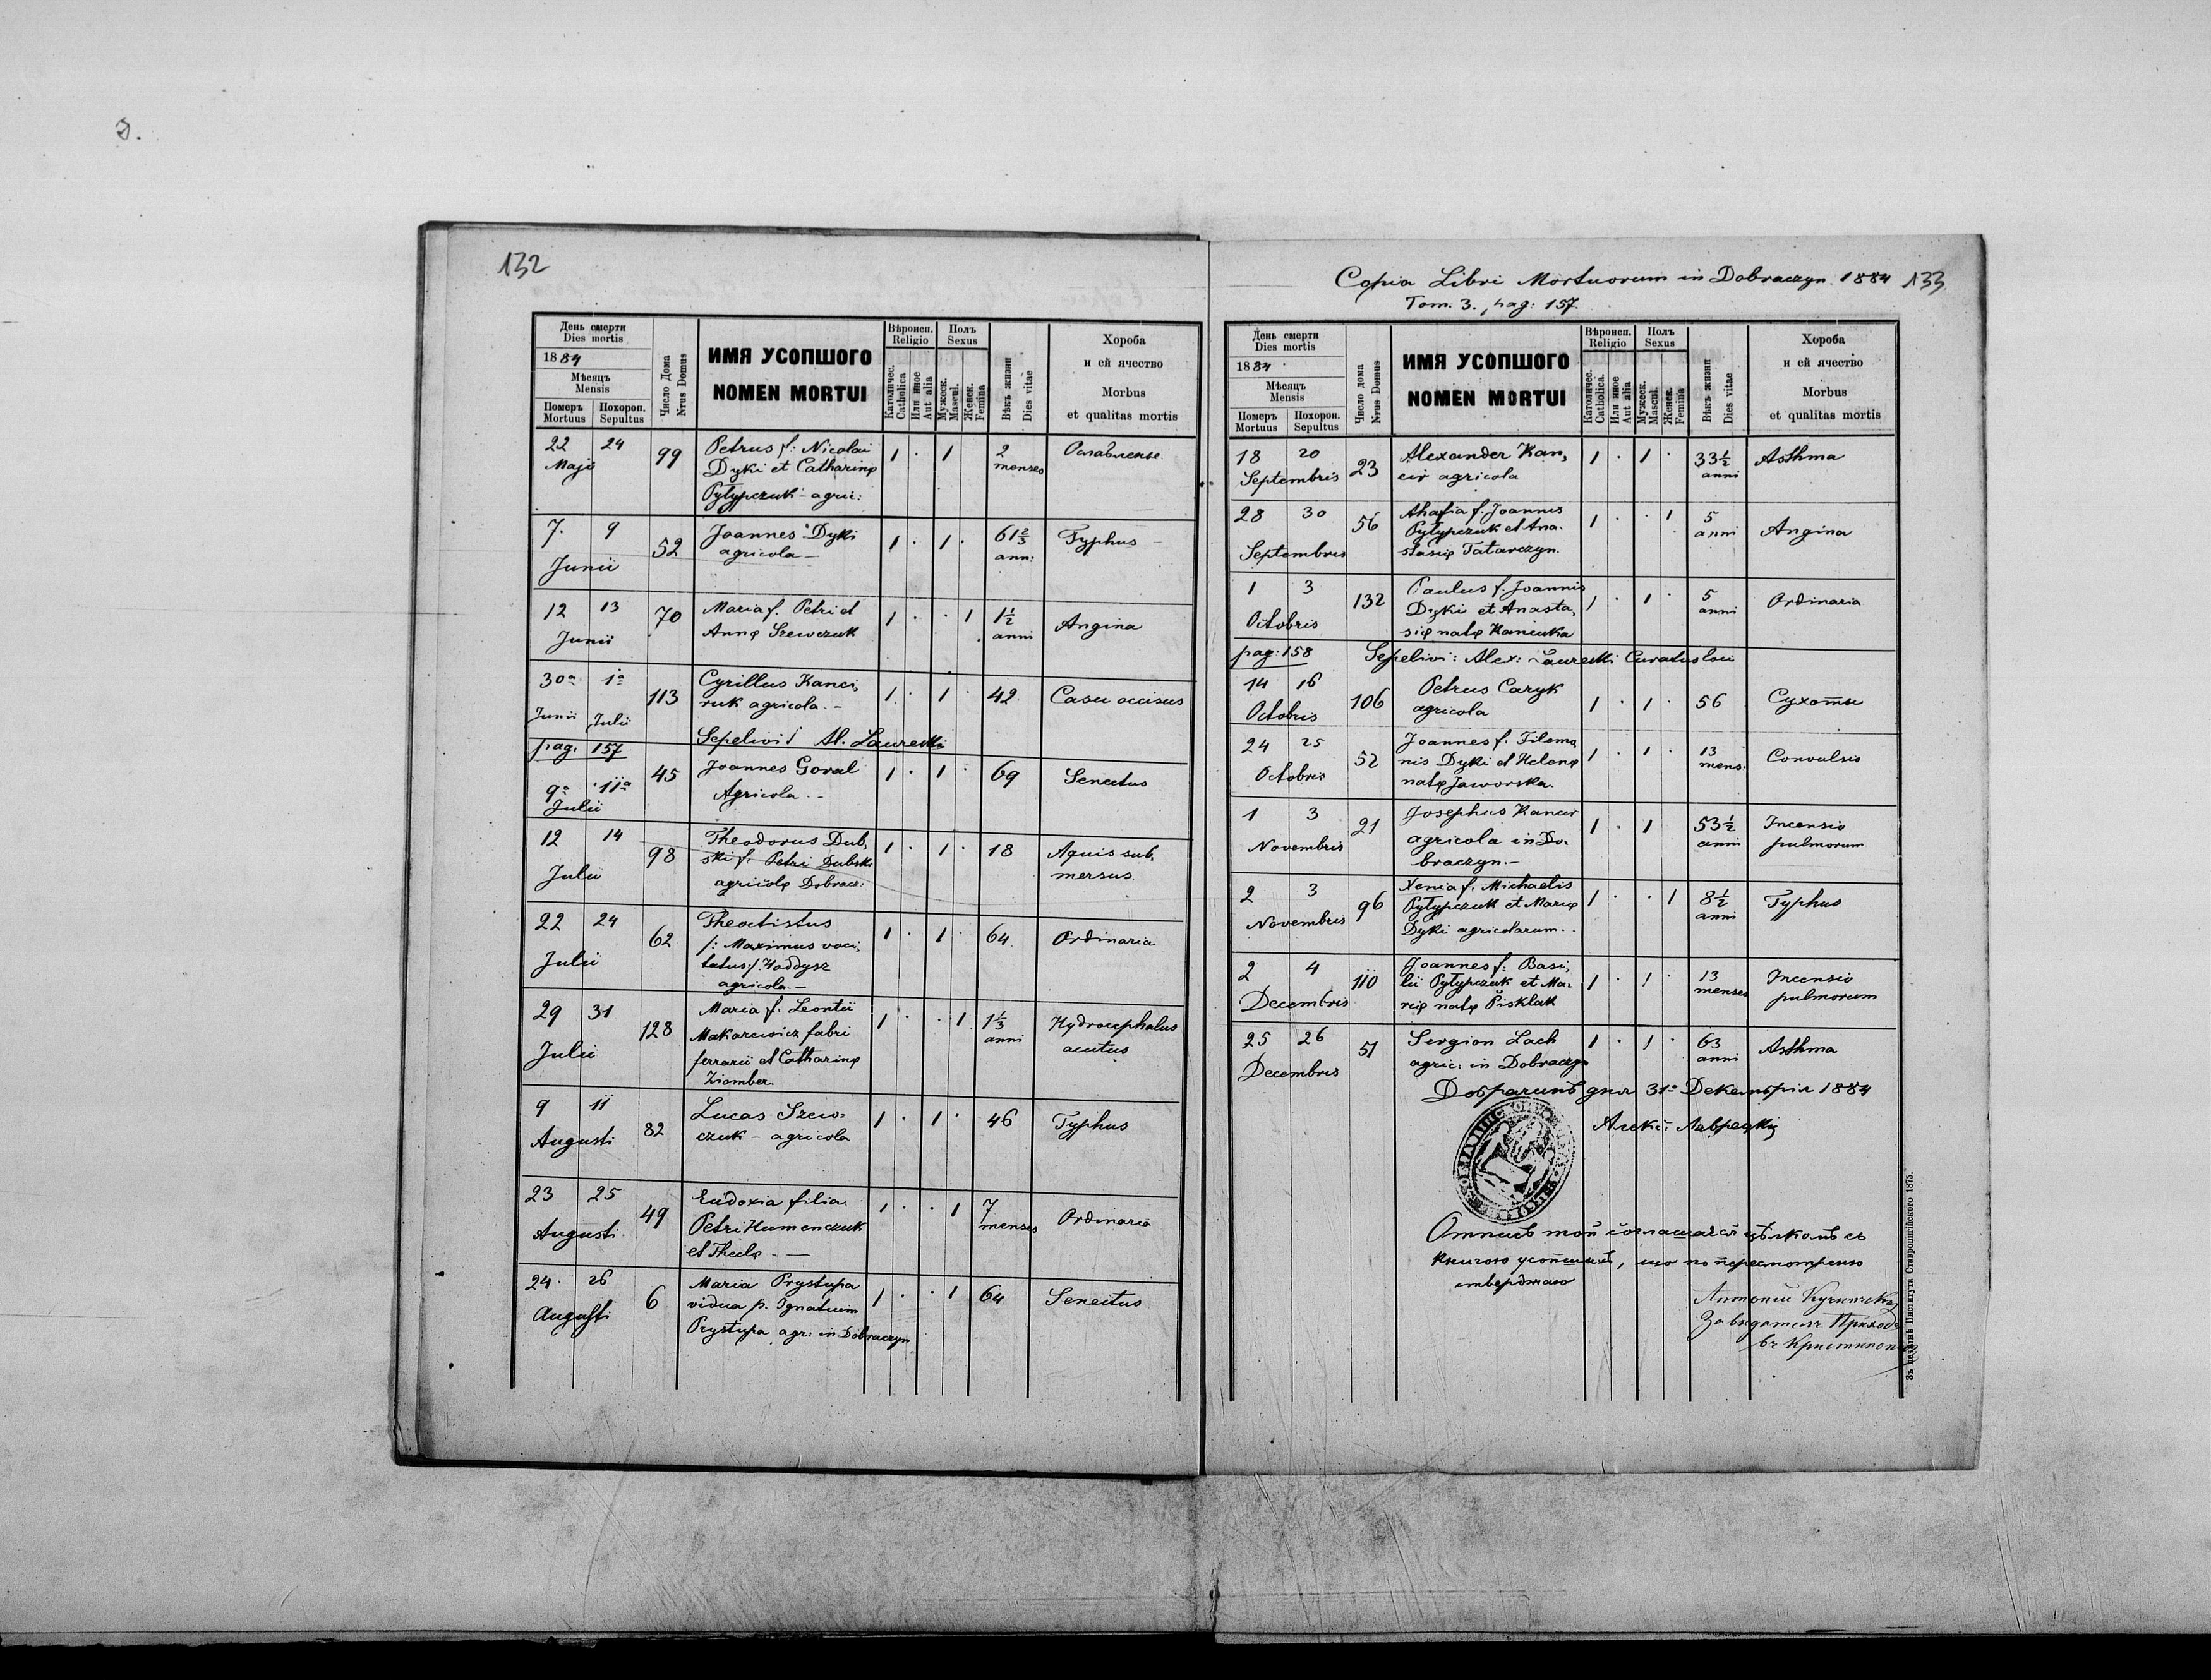 Э.
132
День смерти
Dies mortis
1884
Мѣсяцъ
Mensis
Померъ Похорон.
Mortuus Sepultus
Число Дома
Nrus Domus
ИМЯ УСОПШОГО
NOMEN MORTUI
Вѣроисп.
Religio
Католичес.
Catholica
Или иное
Aut alia
Полъ
Sexus
Мужеск.
Mascul.
Женск.
Femina
Вѣкъ жизни
Dies vitae
Хороба
и ей ячество
Morbus
et qualitas mortis
22 24 99 Petrus f: Nicolai 1 . 1 2
Maji Dyki et Catharinę menses
Pyłypczuk - agric:
7. 9 52 Joannes Dyki 1 . 1 . 61 2/3 Typhus
Junii agricola — ann:
12 13 70 Maria f. Petri et 1 . . 1 1 1/2 Angina
Junii Annę Szewczuk anni
30a 1a 113 Cyrillus Kanci, 1 . 1 . 42 Casu occisus
Junii Julii ruk agricola. -
pag. 157 Sepelivi Al. Laurecki
9a 11a 45 Joannes Goral 1 . 1 . 69 Senectus
Julii Agricola. -
12 14 98 Theodorus Dub, 1 . 1 . 18 Aquis sub,
Julii ski f. Petri Dubski mersus
agricolę Dobracz:
22 24 62 Theoctistus 1 . 1 . 64 Ordinaria
Julii /: Maximus voci,
tatus:/ Hoddysz
agricola. -
29 31 128 Maria f. Leontii 1 . . 1 1 1/3 Hydrocephalus
Julii Makarewicz fabri anni acutus
ferrarii et Catharinę
Ziomber.
9 11 82 Lucas Szew- 1 . 1 . 46 Typhus
Augusti czuk - agricola
23 25 49 Eudoxia filia 1 . . 1 7 Ordinaria
Augusti Petri Humenczuk menses
et Theclę - —
24 26 6 Maria Prystupa 1 . . 1 64 Senectus
Augusti vidua p. Ignatium
Prystupa agr: in Dobraczyn
Copia Libri Mortuorum in Dobraczyn 1884 133
Tom. 3. pag: 157.
День смерти
Dies mortis
1884
Мѣсяцъ
Mensis
Померъ Похорон.
Mortuus Sepultus
Число дома
Nrus Domus
ИМЯ УСОПШОГО
NOMEN MORTUI
Вѣроисп.
Religio
Католичес.
Catholica.
Или иное
Aut alia
Полъ
Sexus
Мужеск.
Mascul.
Женск.
Femina
Вѣкъ жизни
Dies vitae
Хороба
и ей ячество
Morbus
et qualitas mortis
18 20 23 Alexander Kan, 1 . 1 . 33 1/2 Asthma
Septembris cir agricola anni
28 30 56 Ahafia f. Joannis 1 . . 1 5 Angina
Septembris Pyłypczuk et Ana- anni
stasię Tatarczyn.
1 3 132 Paulus f. Joannis 1 . 1 . 5 Ordinaria
Octobris Dyki et Anasta, anni
się natę Kaniuka
pag: 158 Sepelivi: Alex: Laurecki Curatus loci
14 16 106 Petrus Caryk 1 . 1 . 56 Сухоты
Octobris agricola
24 25 52 Joannes f. Filemo, 1 . 1 . 13 Convulsio
Octobris nis Dyki et Helenę mens.
natę Jaworska.
1 3 21 Josephus Kancir 1 . 1 53 1/2 Incensio
Novembris agricola in Do- anni pulmorum
braczyn. -
2 3 96 Xenia f. Michaelis 1 . . 1 8 1/2 Typhus
Novembris Pyłypczuk et Marię anni
Dyki agricolarum.
2 4 110 Joannes f: Basi, 1 . 1 . 13 Incensio
Decembris lii Pyłypczuk et Ma- menses pulmorum
rię natę Pisklak
25 26 51 Sergion Lach 1 . 1 . 63 Asthma
Decembris agric: in Dobraczyn anni
Добрачинъ дня 31го Декемврія 1884
Алекс: Лаврецкій
Отписъ той согласуєся цѣлкомъ съ
книгою усопшихъ, що по пересмотренію
стверджаю
Завидатель Приход.
въ Кристинополи
Зъ печатнѣ Института Ставропигійского 1875.